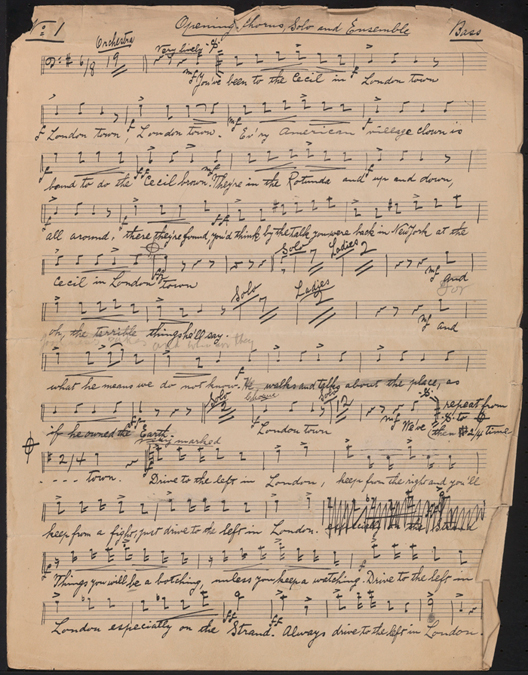 No: 1 Opening Chorus, Solo and Ensemble Bass
Orchestra
6/8 19 Very lively
mf You've been to the Cecil in f London town
f London town, f London town. mf Ev'ry American f village clown is
bound to do the Cecil brown. They're in the Rotunda and f up and down,
"all around," there they're found, you'd think by the talk you were back in New York at the
Solo 7 Ladies 2
Cecil in London town mf and
For
Solo 7 Ladies
oh, the terrible things he'll say. mf and
what he means we do not know. He walks and talks about the place, as
Solo 2 Chorus Solo 2
if he owned the Earth. London town mf We've
repeat from
to
then 2/4 time
2/4 9 very marked
- - - - town. Drive to the left in London, keep from the right and you'll
keep from a fight; just drive to the left in London.
Things you will be a botching, unless you keep a watching. Drive to the left in
London especially on the Strand. Always drive to the left in London.